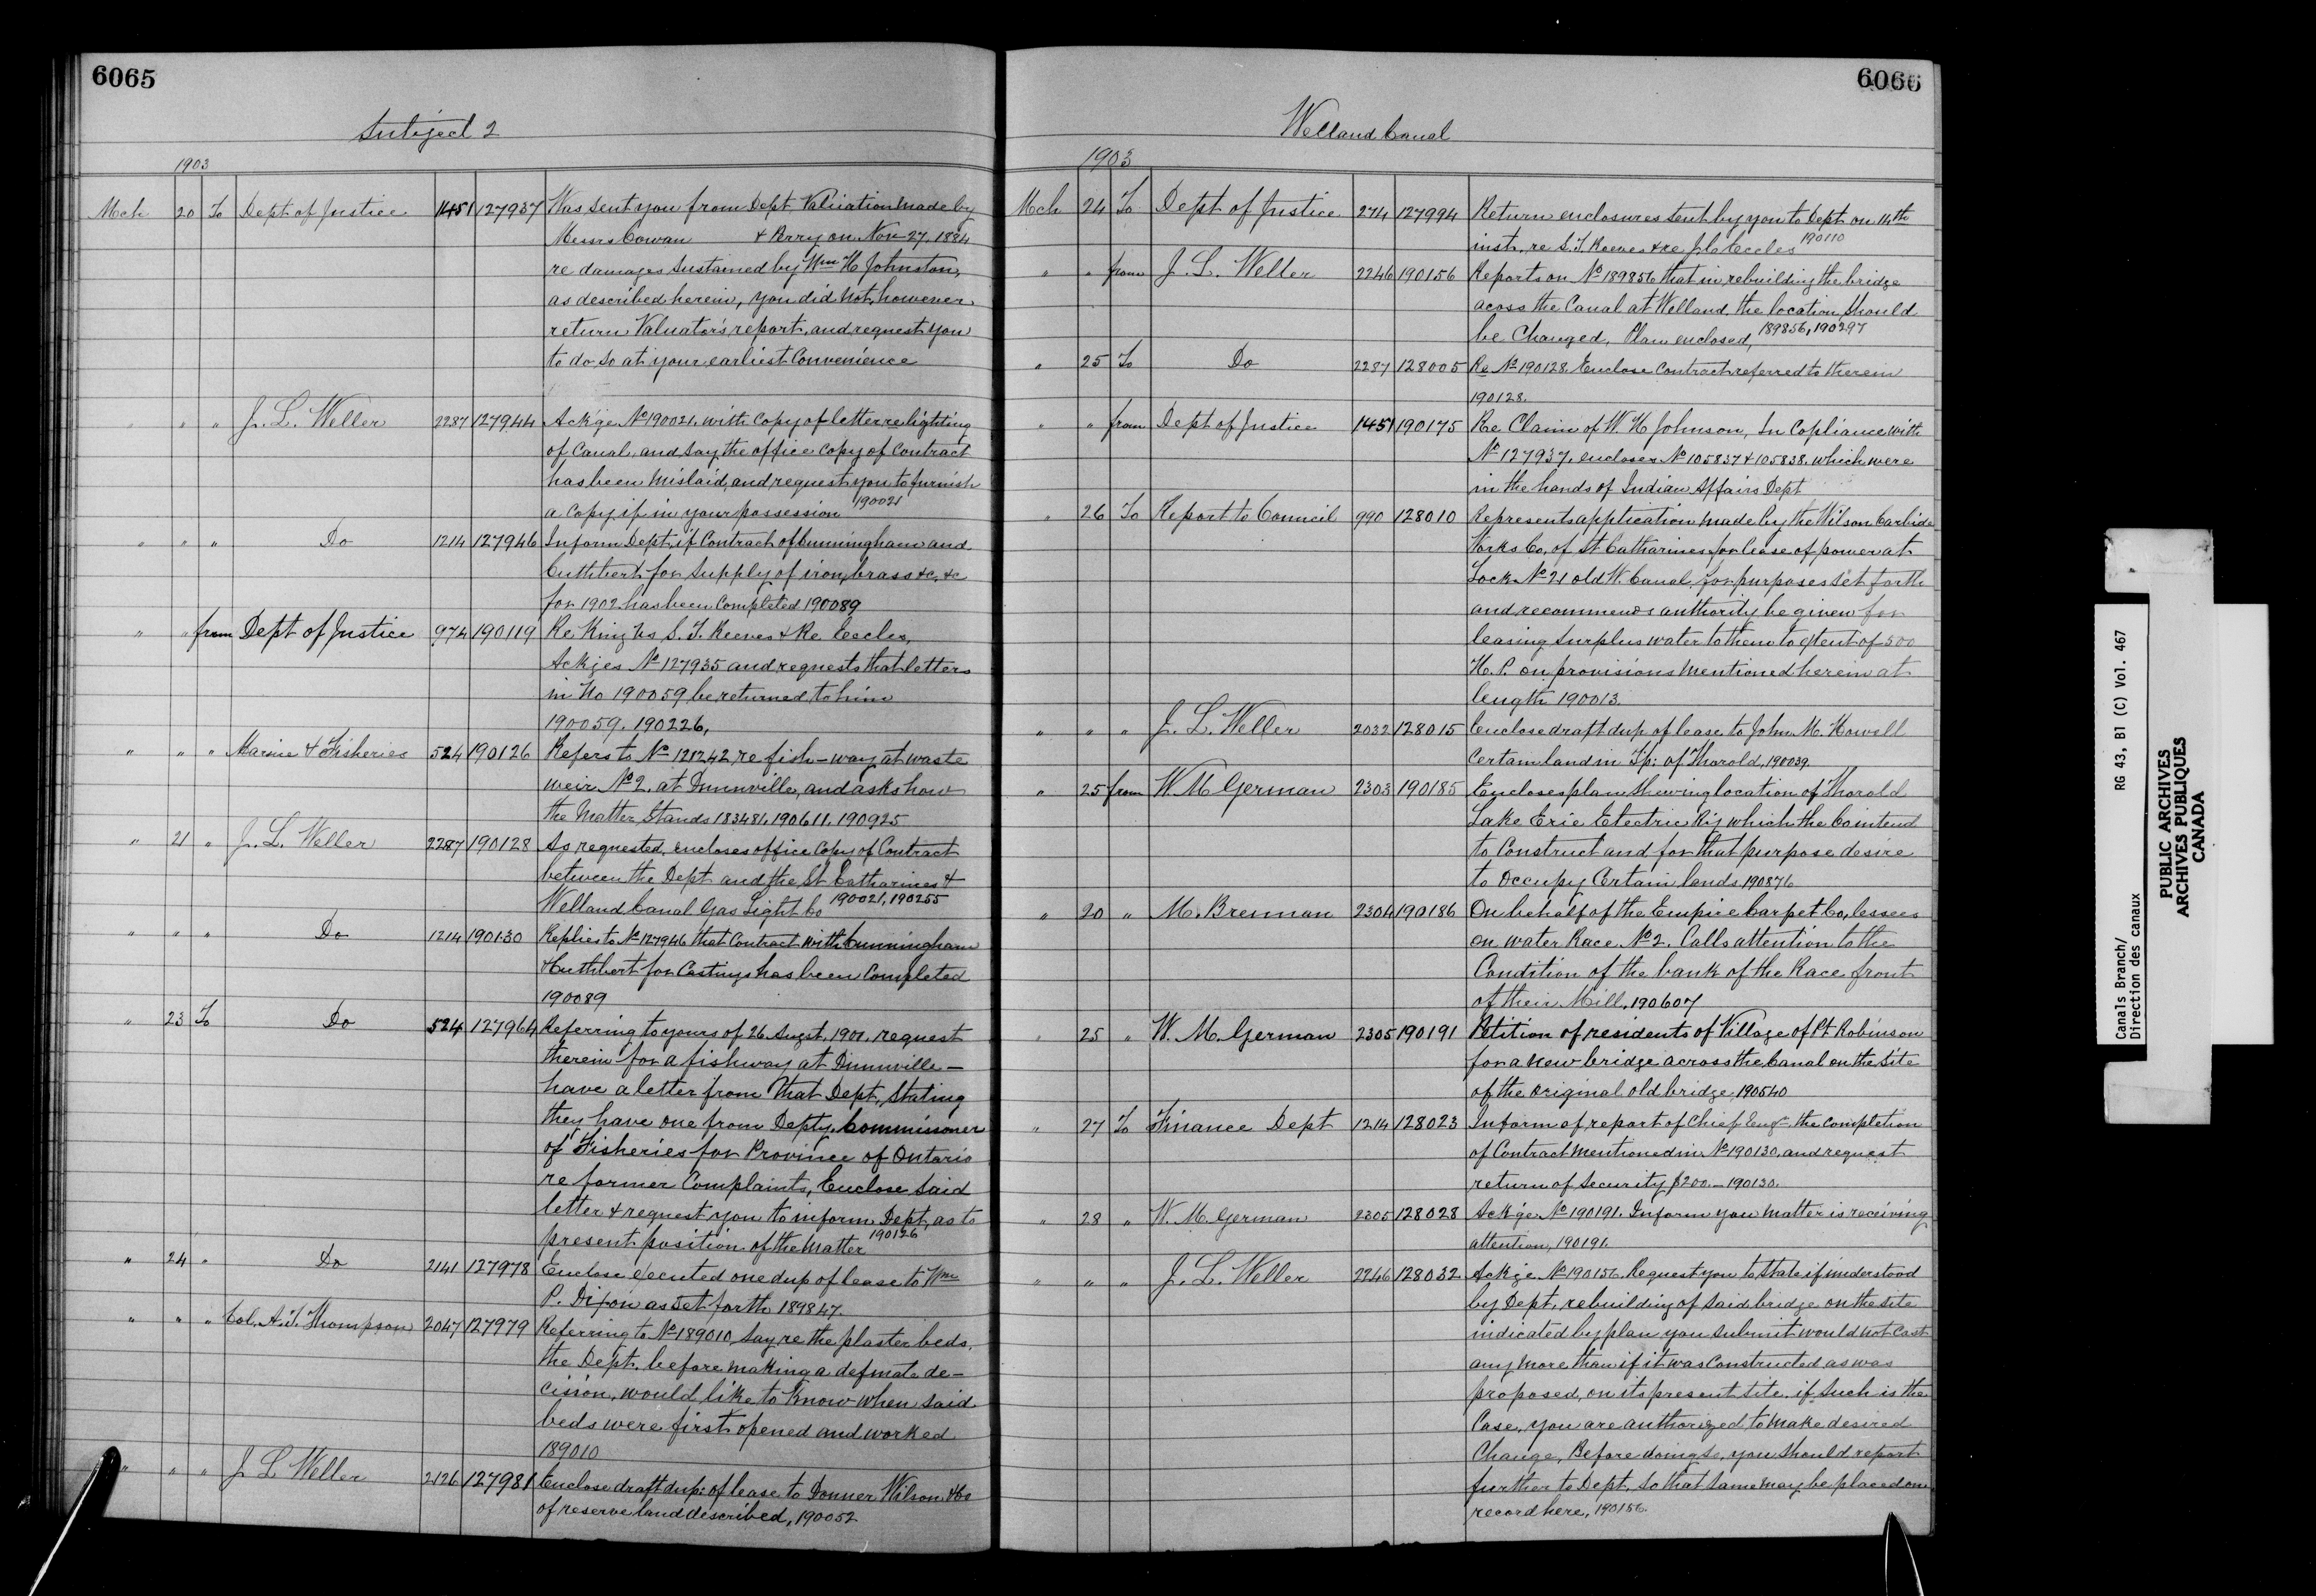 6065
Subject 2
1903
Mch 20 To Dept of Justice 1451 127937 Was sent you from Dept. Valuation made by
Messrs Cowan & Perry on Nov 27. 1884
re damages sustained by Wm H Johnston,
as described herein, you did not, however
return Valuator's report, and request you
to do so at your earliest Convenience
" " " J. L. Weller 2287 127944 Ackge. No 190021. with Copy of letter re lighting
of Canal, and say the office Copy of Contract
has been mislaid, and request you to furnish
a Copy, if in your possession 190021
" " " Do 1214 127946 Inform Dept. if Contract of Cunningham and
Cuthbert for supply of iron, brass &c, &c
for 1902 has been Completed 190089
" " from Dept of Justice 974 190119 Re King vs S. T. Reeves & Re Eccles,
Ackges No 127935 and requests that letters
in No 190059 be returned to him
190059. 190226,
" " " Marine & Fisheries 524 190126 Refers to No 121242 re fish-way at waste
weir No 2. at Dunnville, and asks how
the Matter Stands 183481. 190611. 190925
" 21 " J. L. Weller 2287 190128 As requested, encloses office Copy of Contract
between the Dept and the St Catharines &
Welland Canal Gas Light Co 190021, 190255
" " " Do 1214 190130 Replies to No 127946 that Contract with Cunningham
& Cuthbert for Castings has been Completed
190089
" 23 To Do 524 127964 Referring to yours of 26 Augst. 1901. request
therein for a fishway at Dunnville –
have a letter from that Dept. stating
they have one from Depty. Commissioner
of Fisheries for Province of Ontario
re former Complaints, Enclose said
letter & request you to inform Dept. as to
present position of the matter 190126
" 24 " Do 2141 127978 Enclose executed one dup of lease to Wm
P. Dixon as set forth 189847.
" " " Col. A. T. Thompson 2047 127979 Referring to No 189010, say re the plaster beds,
the Dept. before making a definate de-
cision, would like to know when said
beds were first opened and worked
189010
" " " J L Weller 2126 127981 Enclose draft dup: of lease to Donner Wilson & Co
of reserve land described, 190052
6066
Welland Canal
1903
Mch 24 To Dept of Justice 274 127994 Return enclosures sent by you to Dept on 14th
inst. re S. T. Reeves & re Jno Eccles 190110
" " from J. L. Weller 2246 190156 Reports on No 189856 that in rebuilding the bridge
acoss the Canal at Welland the location should
be Changed, Plan enclosed, 189856, 190297
" 25 To Do 2287 128005 Re No 190128. Enclose Contract referred to therein
190128.
" " from Dept of Justice 1451 190175 Re Claim of W. H Johnson, In Copliance with
No 127937. encloses No 105837 & 105838. which were
in the hands of Indian Affairs Dept
" 26 To Report to Council 990 128010 Represents application made by the Wilson Carbide
Works Co. of St Catharines for lease of power at
Lock No 21 old W. Canal, for purposes set forth
and recommends authority be given for
leasing surplus water to them to extent of 500
H. P. on provisions mentioned herein at
length 190013.
" " " J. L. Weller 2032 128015 Enclose draft dup. of lease to John M. Howell
Certain land in Tp: of Thorold, 190039.
" 25 from W. M German 2303 190185 Encloses plan shewing location of Thorold
Lake Erie Electric Ry which the Co intend
to Construct and for that purpose desire
to Occupy Certain lands. 190876
" 20 " M. Brennan 2304 190186 On behalf of the Empire Carpet Co, lessees
on water Race No 2. Calls attention to the
Condition of the bank of the Race front
of their Mill. 190607
" 25 " W. M. German 2305 190191 Petition of residents of Village of Pt Robinson
for a new bridge across the Canal on the site
of the original old bridge, 190540
" 27 To Finance Dept 1214 128023 Inform of report of Chief Engr. the Completion
of Contract mentioned in No 190130, and request
return of Security $200.– 190130.
" 28 " W. M. German 2305 128028 Ackge. No 190191. Inform you matter is receiving
attention, 190191.
" " " J. L. Weller 2246 128032 Ackge No 190156. Request you to state if understood
by Dept. rebuilding of said bridge on the site
indicated by plan you submit would not Cost
any more than if it was Constructed as was
proposed, on its present site. if such is the
Case, you are authorized to make desired
Change, Before doing so, you should report
further to Dept. so that same may be placed on
record here, 190156.
Canals Branch/
Direction des canaux
RG 43, B1 (C) Vol. 467
PUBLIC ARCHIVES
ARCHIVES PUBLIQUES
CANADA